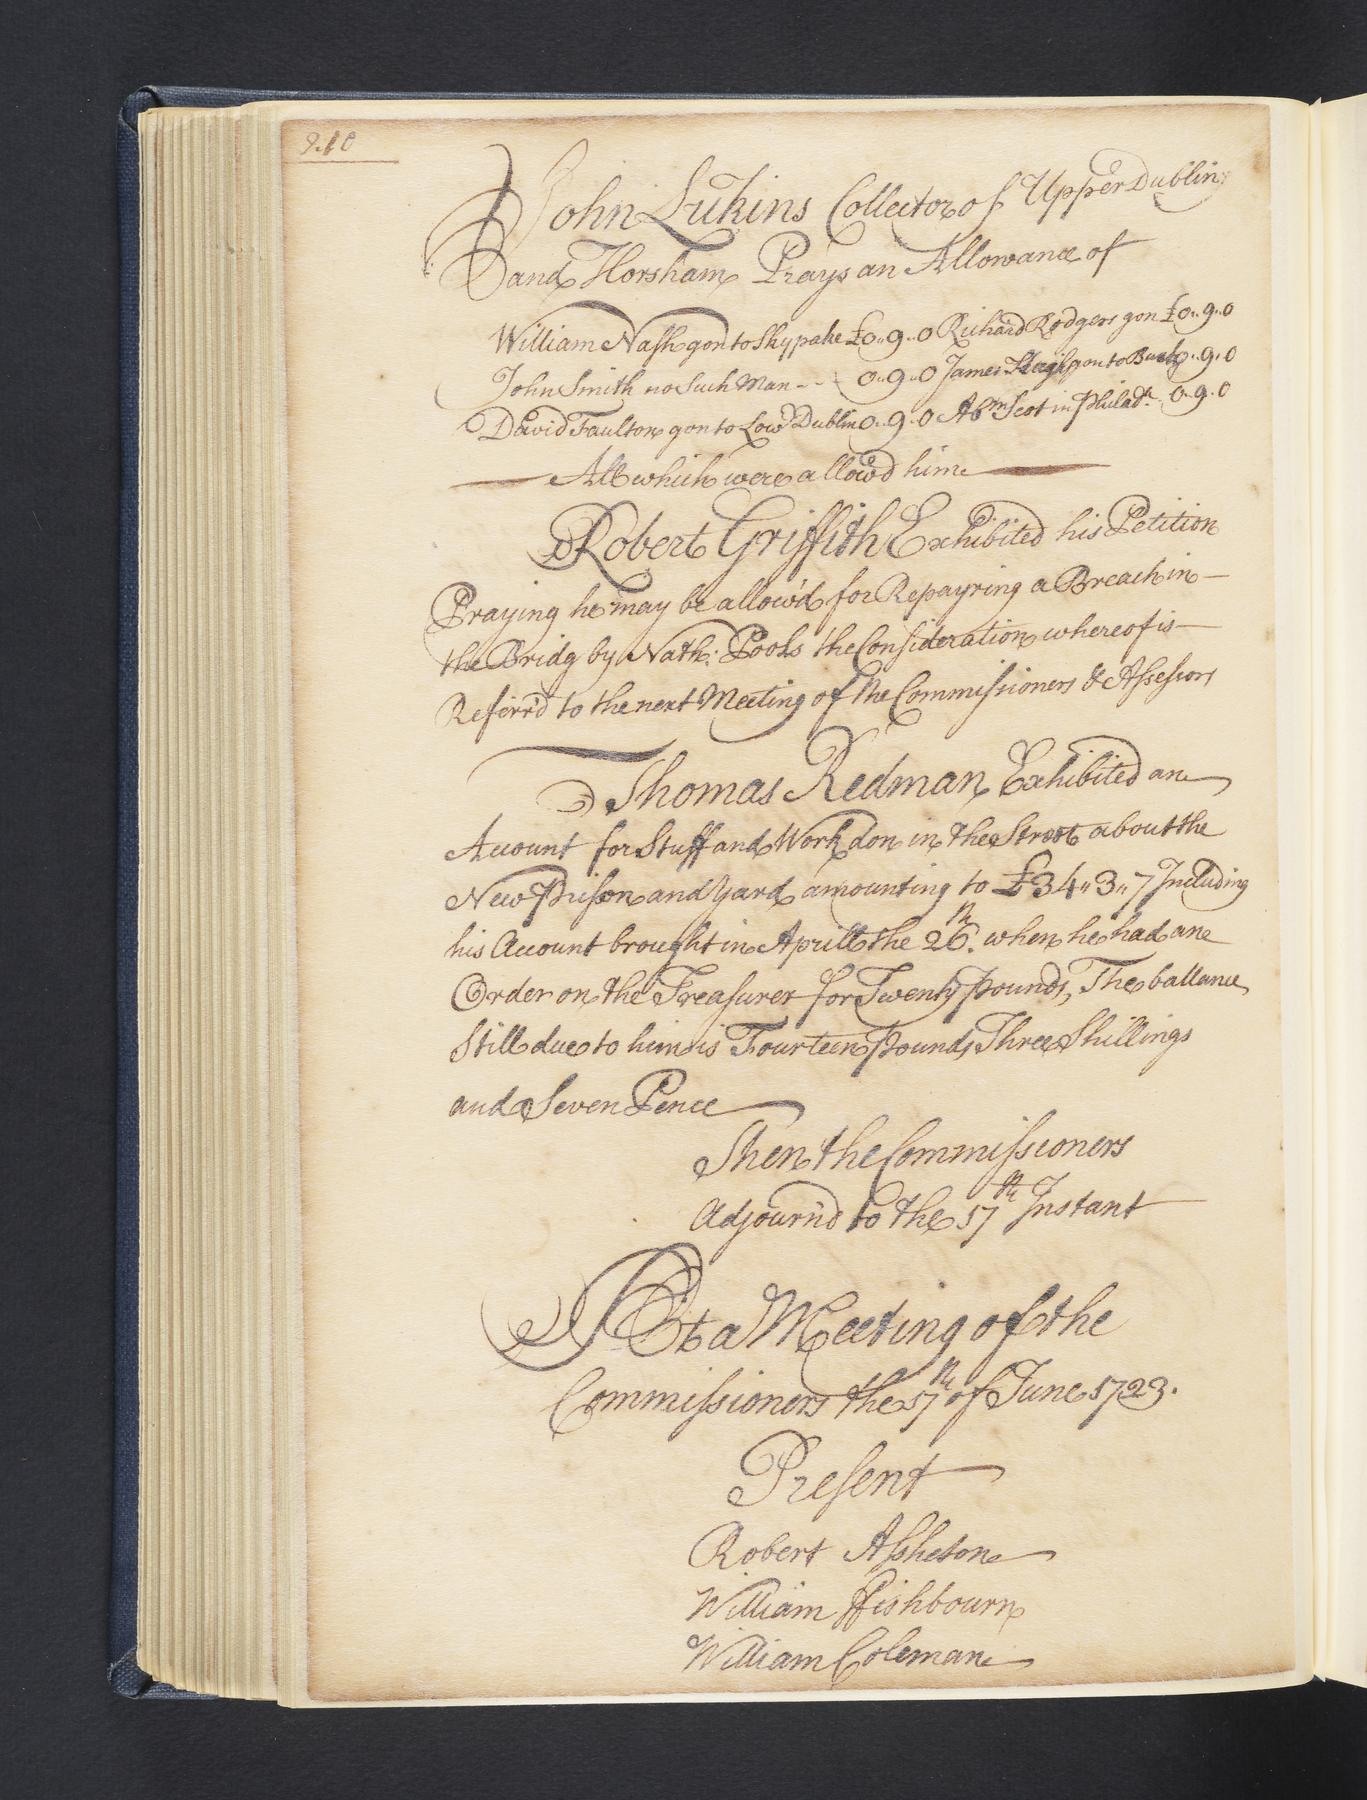 210
John Lukins Collector of Upper Dublin
and Horsham Prays an Allowance of
William Nash gon to Shyppake £0,,9,,0 Richard Rodgers gon £0,,9,,0
John Smith no Such Man - - - 0,,9,,0 James gon to Bucks 0,,9,,0
David Faulton gon to Lowr Dublin 0,,9,,0 Abm Scot in Philada 0,,9,,0
All which were allow'd him
Robert Griffith Exhibited his Petition
Praying he may be allow'd for Repayring a Breach in
the Bridg by Nath: Pools the Consideration whereof is
Referr'd to the next Meeting of the Commissioners & Assessors
Thomas Redman Exhibited an
Account for Stuff and Work don in the Street about the
New Prison and Yard amounting to £34,,3,,7 Including
his Account brought in Aprill the 26th. when he had an
Order on the Treasurer for Twenty pounds, The ballance
Still due to him is Fourteen pounds Three Shillings
and Seven Pence
Then the Commissioners
Adjourn'd to the 17th Instant
At a Meeting of the
Commissioners the 17th of June 1723.
Present
Robert Assheton
William ffishbourn
William Coleman